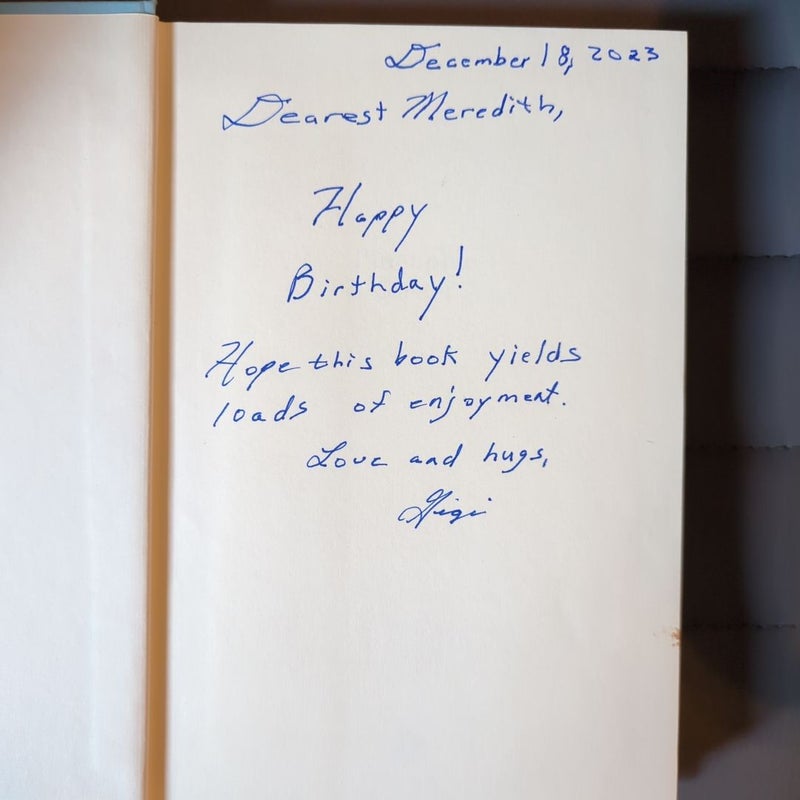 December 18, 2023
Dearest Meredith,
Happy
Birthday!
Hope this book yields
loads of enjoyment.
Love and hugs,
Gigi